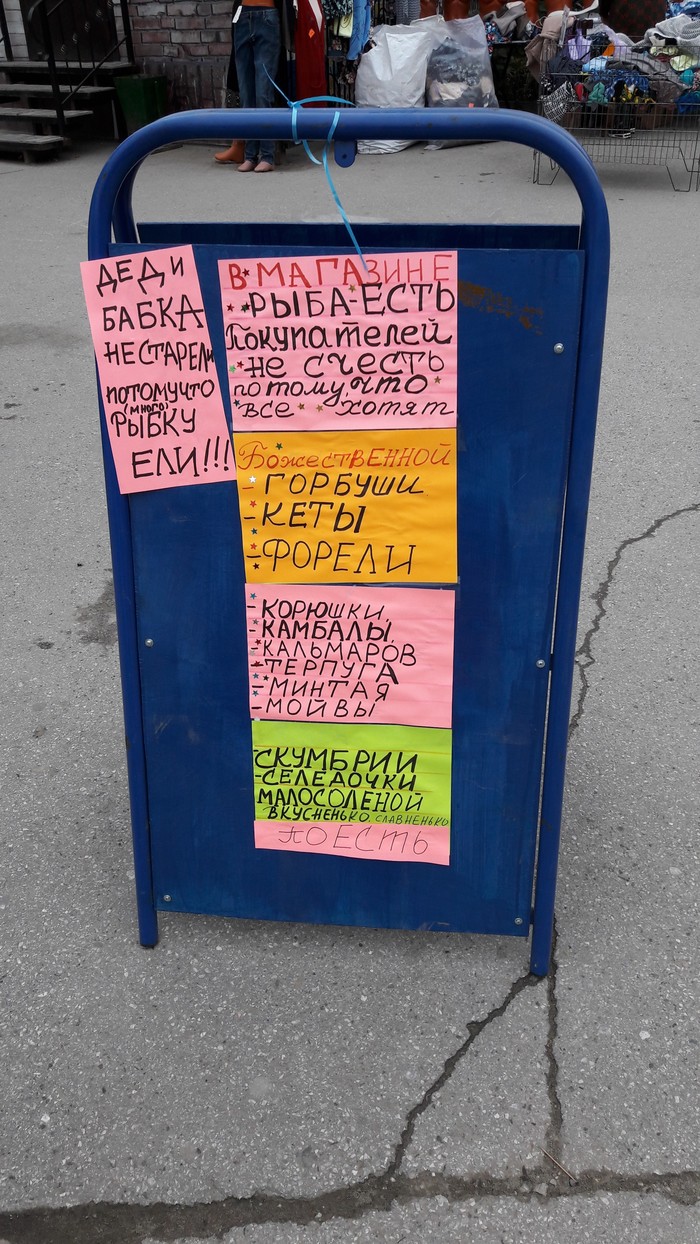 ДЕД и
БАБКА
НЕ СТАРЕЛИ
ПОТОМУЧТО
(МНОГО)
РЫБКУ
ЕЛИ!!!
В МАГАЗИНЕ
РЫБА-ЕСТЬ
Покупателей
не счесть
потому, что
все хотят
Божественной
-ГОРБУШИ
-КЕТЫ
-ФОРЕЛИ
-КОРЮШКИ,
-КАМБАЛЫ,
-КАЛЬМАРОВ
-ТЕРПУГА
-МИНТАЯ
-МОЙВЫ
-СКУМБРИИ
-СЕЛЕДОЧКИ
МАЛОСОЛЕНОЙ
ВКУСНЕНЬКО, СЛАВНЕНЬКО
ПОЕСТЬ